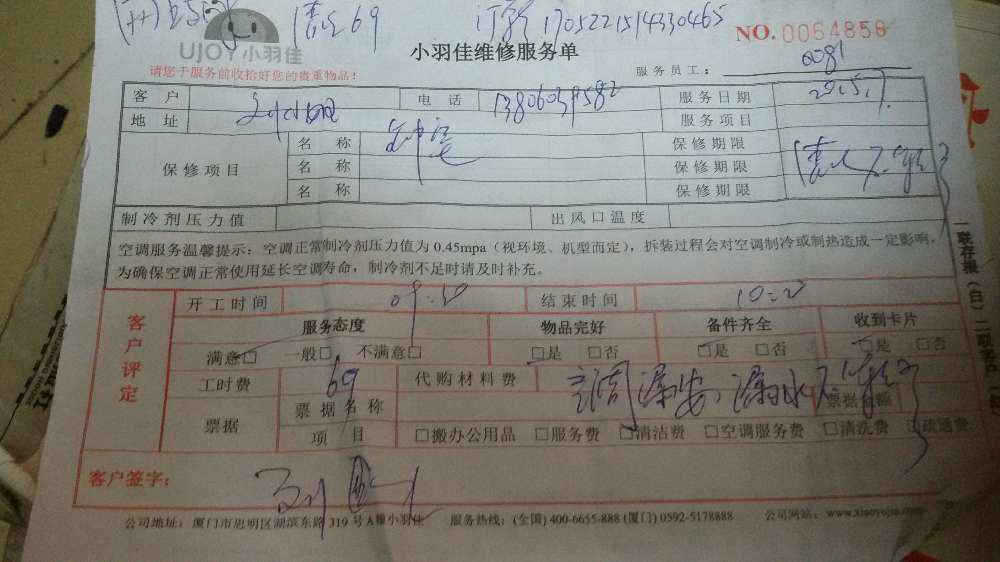 订单 1705221514330465
69
UJOY 小羽佳
小羽佳维修服务单
NO. 0064858
请您于服务前收拾好您的贵重物品！
服务员工： 0081
客户
电话
服务日期
地址
服务项目
保修项目
名称
保修期限
名称
保修期限
名称
保修期限
制冷剂压力值
出风口温度
空调服务温馨提示：空调正常制冷剂压力值为 0.45mpa（视环境、机型而定），拆装过程会对空调制冷或制热造成一定影响，
为确保空调正常使用延长空调寿命，制冷剂不足时请及时补充。
一联存根（白）二联客
客户评定
开工时间
结束时间
服务态度
物品完好
备件齐全
收到卡片
满意□ 一般□ 不满意□
□是 □否
□是 □否
□是 □否
工时费 69
代购材料费
票据
票据名称
票据金额
项目
□搬办公用品 □服务费 □清洁费 □空调服务费 □清洗费 □疏通费
客户签字：
公司地址：厦门市思明区湖滨东路 319 号 A 栋小羽佳 服务热线：(全国) 400-6655-888 (厦门) 0592-5178888 公司网站：www.xiaoyujia.com